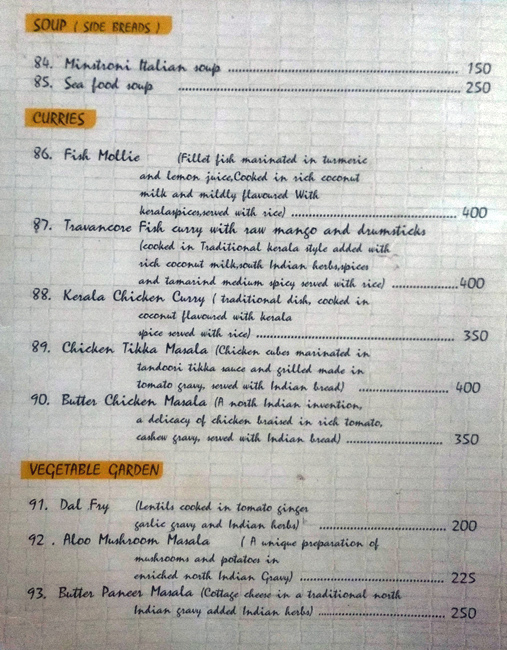 SOUP ( SIDE BREADS )
84. Minstroni Italian soup ........................................ 150
85. Sea food soup ........................................ 250
CURRIES
86. Fish Mollie (Fillet fish marinated in turmeric
and lemon juice,Cooked in rich coconut
milk and mildly flavoured With
keralaspices,served with rice) ........................................ 400
87. Travancore Fish curry with raw mango and drumsticks
(cooked in Traditional kerala style added with
rich coconut milk,south Indian herbs,spices
and tamarind medium spicy served with rice) ....................400
88. Kerala Chicken Curry ( traditional dish, cooked in
coconut flavoured with kerala
spice served with rice) ........................................ 350
89. Chicken Tikka Masala (Chicken cubes marinated in
tandoori tikka sauce and grilled made in
tomato gravy, served with Indian bread) .................... 400
90. Butter Chicken Masala (A north Indian invention,
a delicacy of chicken braised in rich tomato,
cashew gravy, served with Indian bread) .................... 350
VEGETABLE GARDEN
91. Dal Fry (Lentils cooked in tomato ginger
garlic gravy and Indian herbs) .............................. 200
92 . Aloo Mushroom Masala ( A unique preparation of
mushrooms and potatoes in
enriched north Indian Gravy) .............................. 225
93. Butter Paneer Masala (Cottage cheese in a traditional north
Indian gravy added Indian herbs) .............................. 250